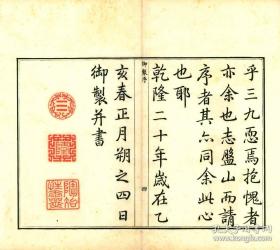 乎三九恧焉抱愧者
亦余也志盤山而請
序者其亦同余此心
也耶
乾隆二十年歲在乙
亥春正月朔之四日
御製并書
御製序
四